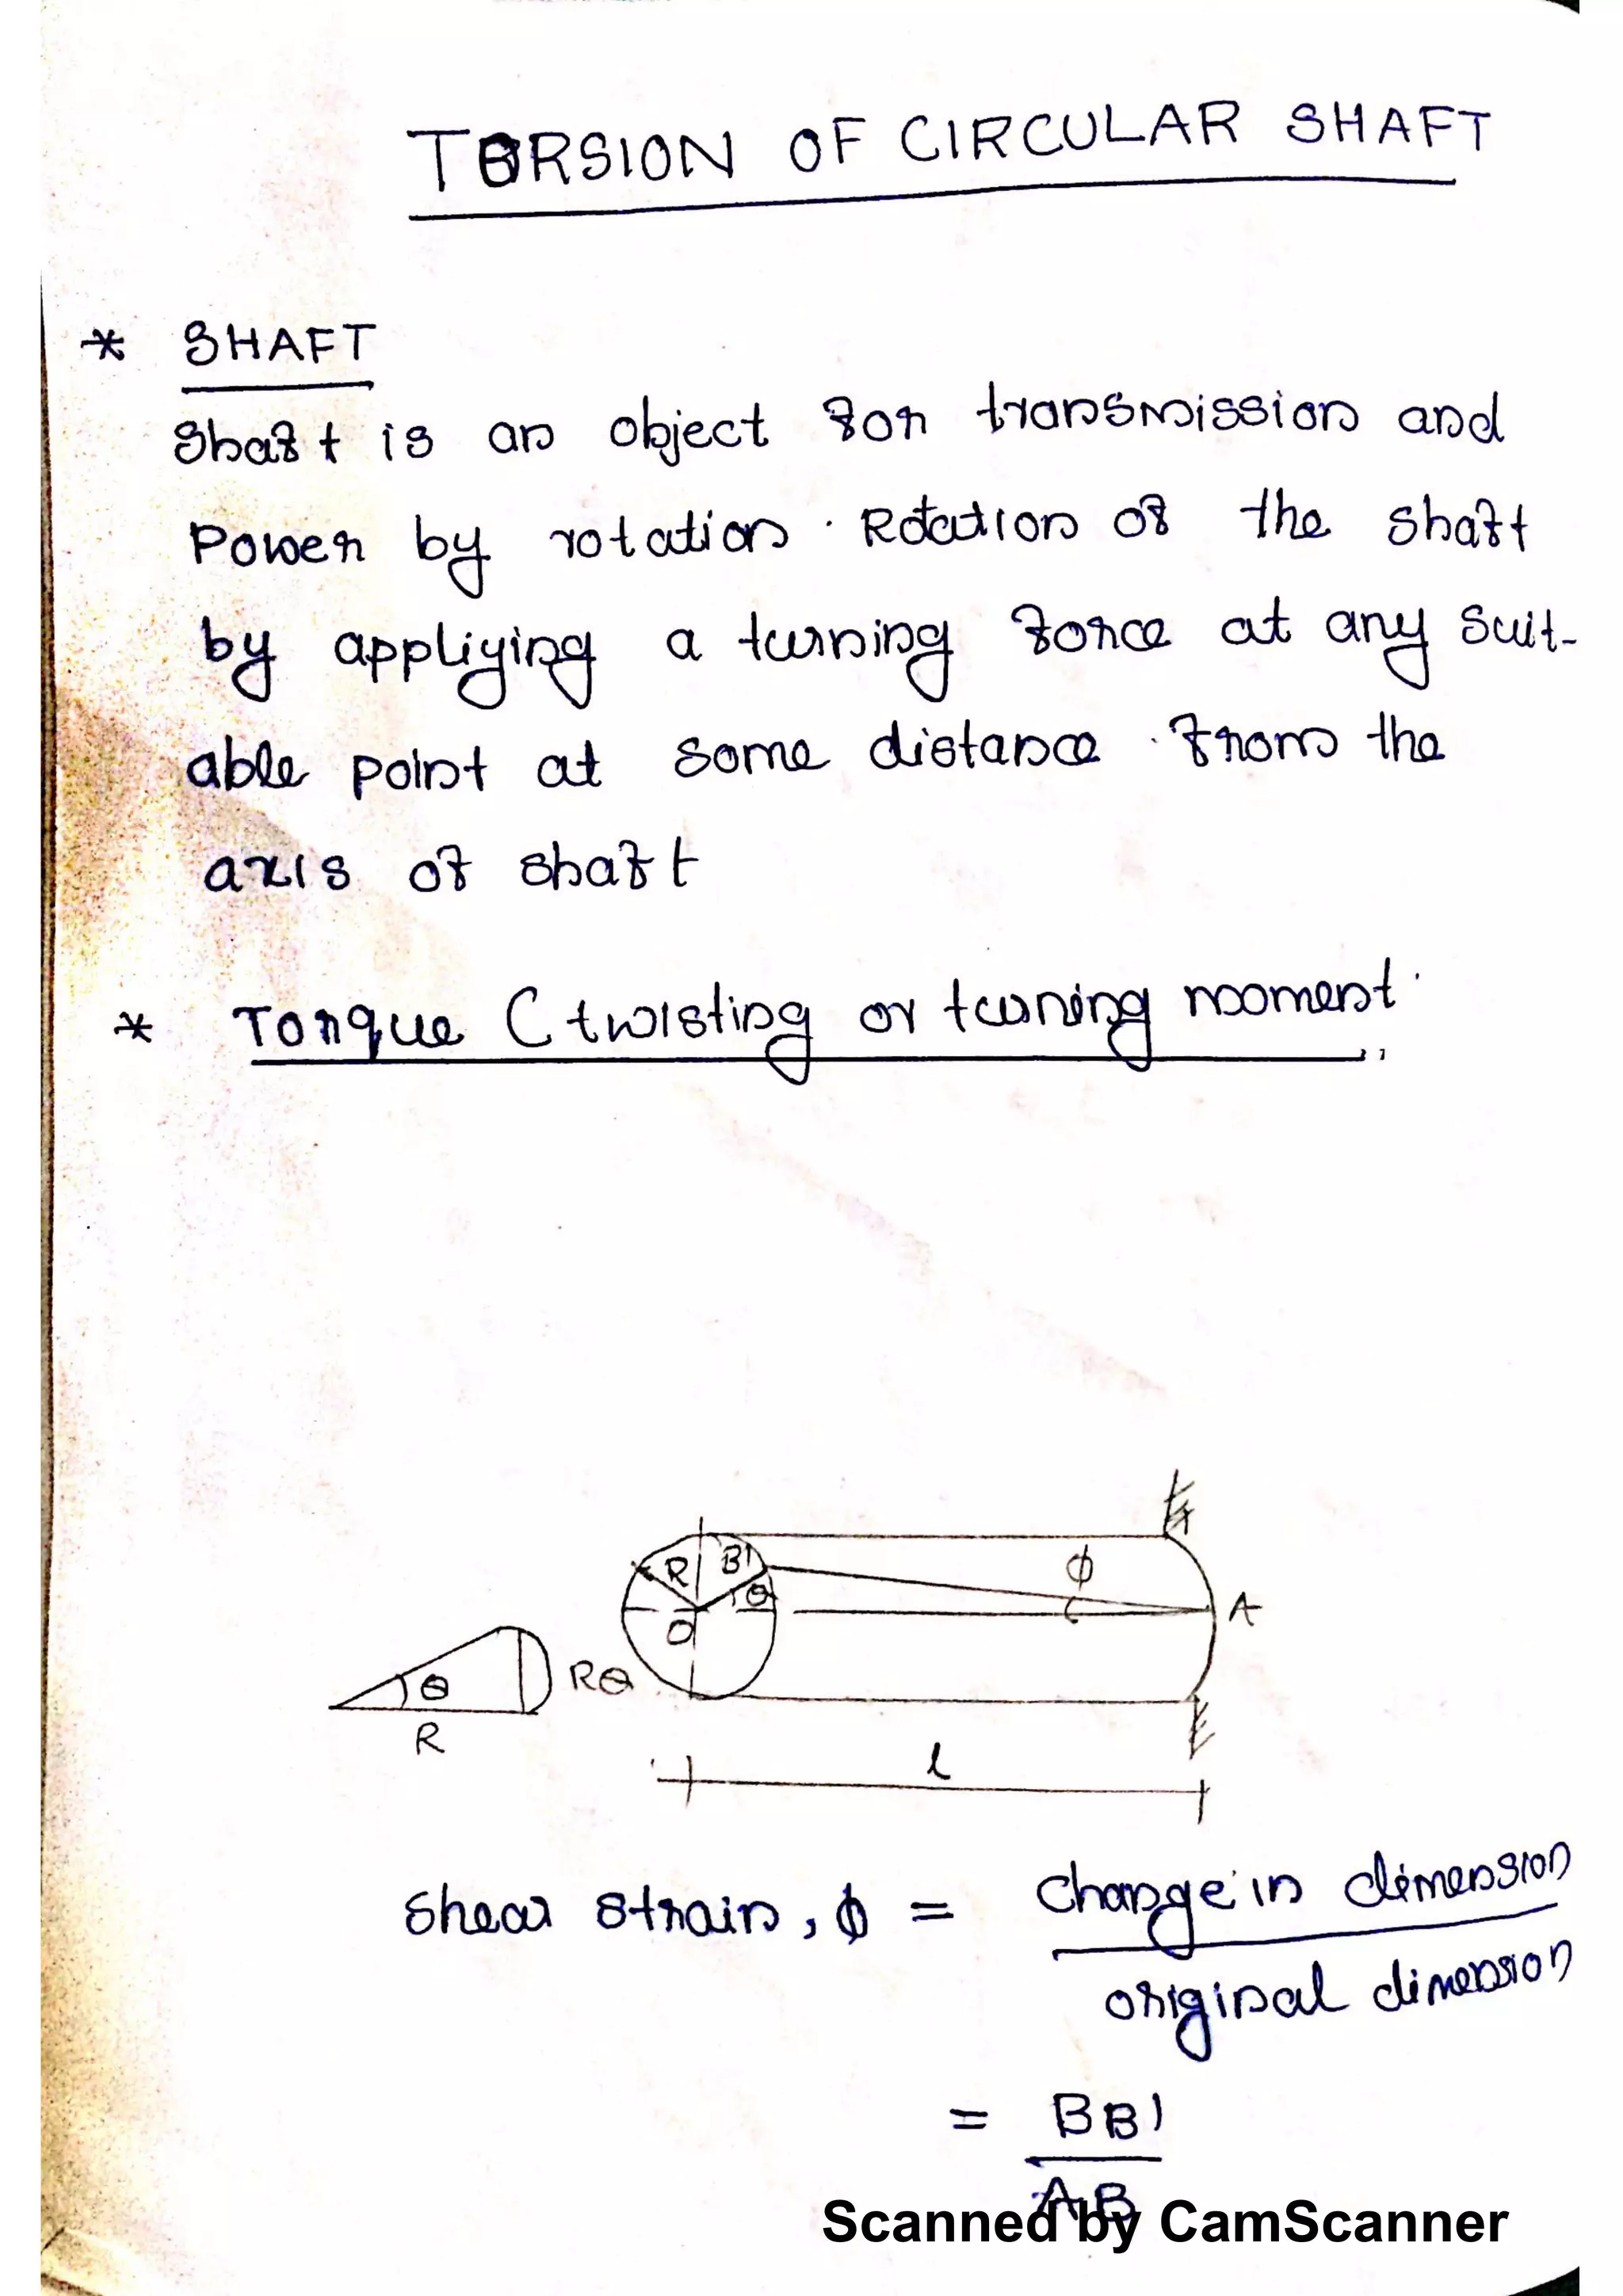 TORSION OF CIRCULAR SHAFT
* SHAFT
Shaft is an object for transmission and
Power by rotation. Rotation of the shaft
by appliying a turning force at any suit-
able point at some distance from the
axis of shaft
* Torque (twisting or turning moment.
R B' θ ϕ
O A
θ Rθ
R
l
Shear strain, ϕ = Change in dimension
original dimension
= BB'
AB
Scanned by CamScanner